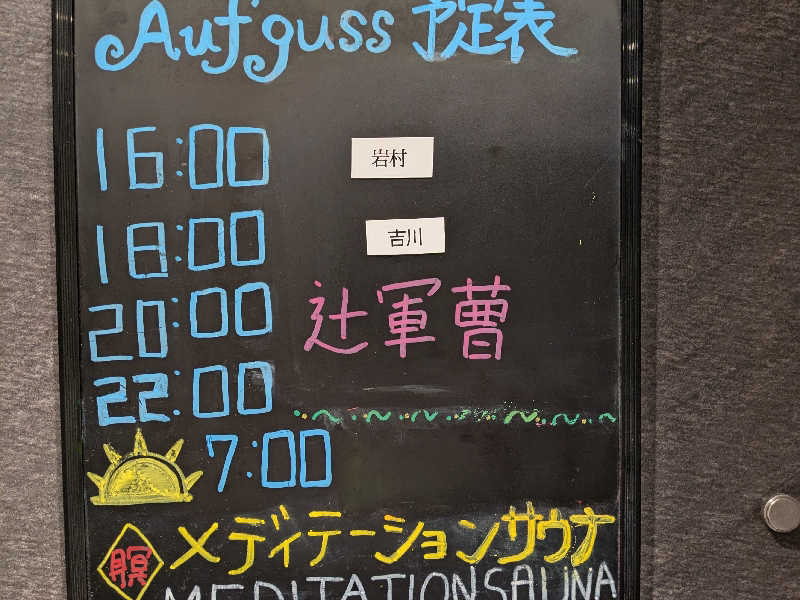 Aufguss 予定表
16:00 岩村
18:00 吉川
20:00 辻軍曹
22:00
7:00
瞑 メディテーションサウナ
MEDITATIONSAUNA